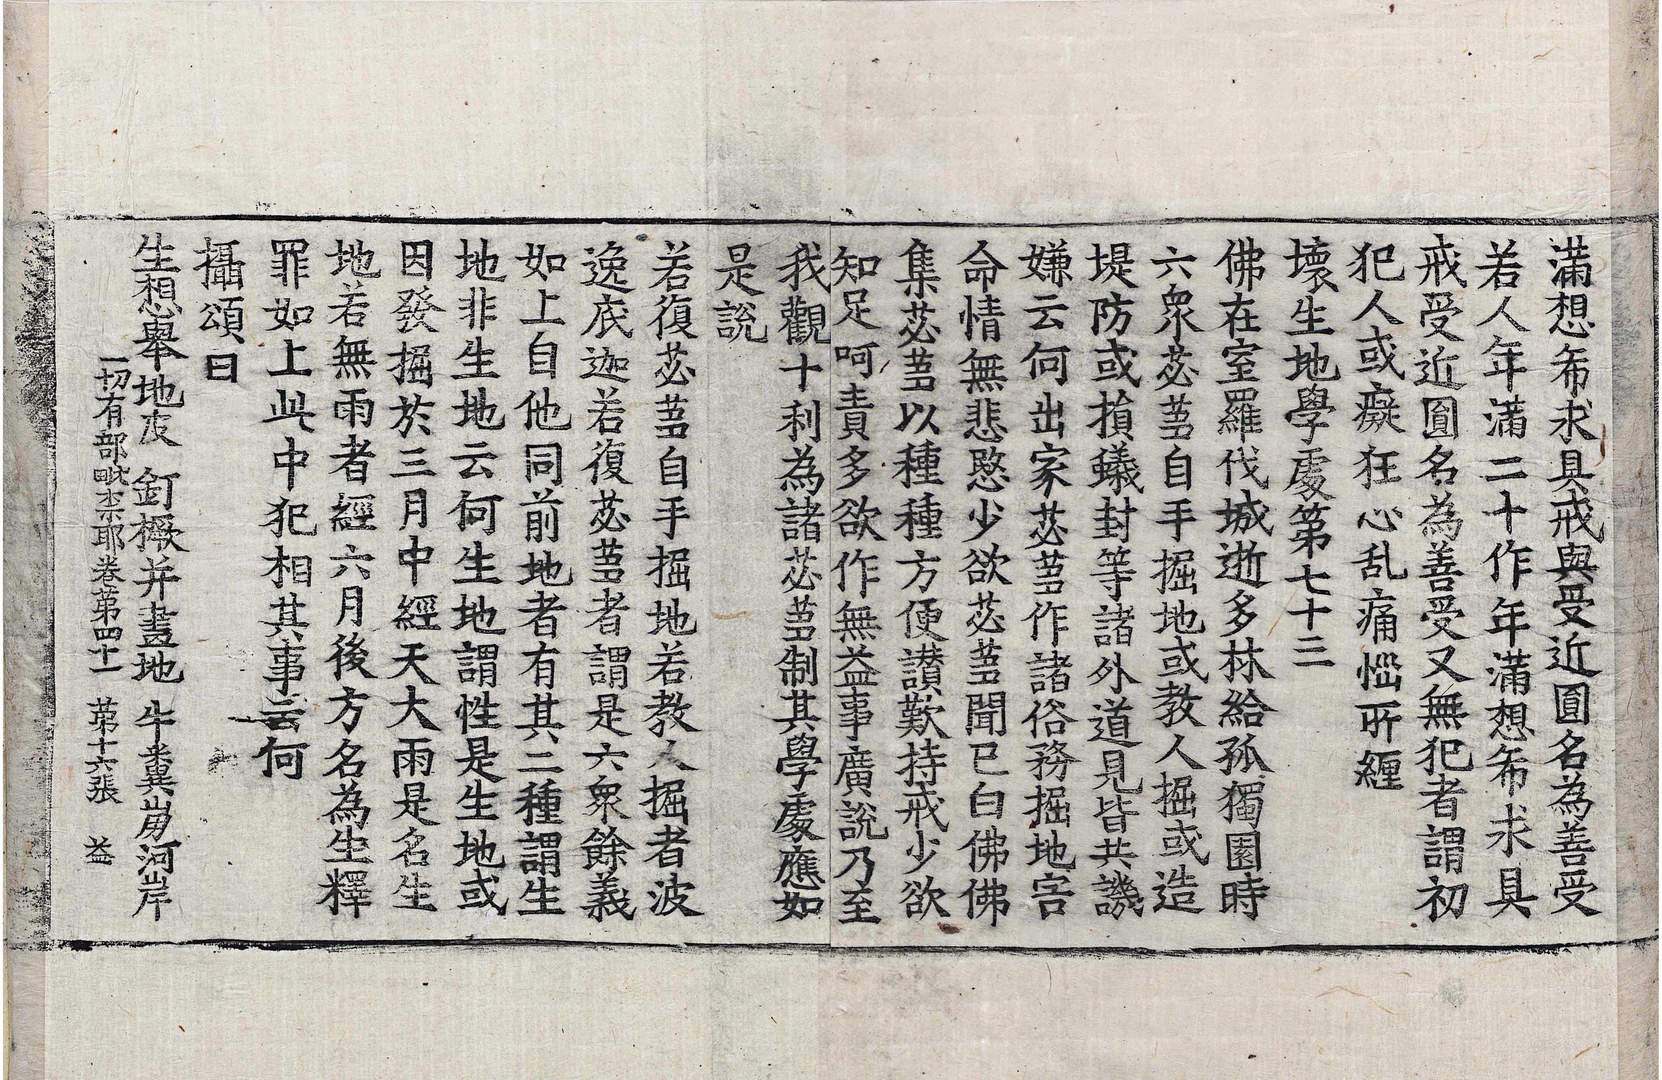 滿想希求具戒與受近圓名為善受
若人年滿二十作年滿想希求具
戒受近圓名為善受又無犯者謂初
犯人或癡狂心乱痛惱所纏
壞生地學處第七十三
佛在室羅伐城逝多林給孤獨園時
六衆苾芻自手掘地或教人掘或造
堤防或損蟻封等諸外道見皆共譏
嫌云何出家苾芻作諸俗務掘地害
命情無悲愍少欲苾芻聞已白佛佛
集苾芻以種種方便讃歎持戒少欲
知足呵責多欲作無益事廣說乃至
我觀十利為諸苾芻制其學處應如
是說
若復苾芻自手掘地若教人掘者波
逸底迦若復苾芻者謂是六衆餘義
如上自他同前地者有其二種謂生
地非生地云何生地謂性是生地或
因發掘於三月中經天大雨是名生
地若無雨者經六月後方名為生釋
罪如上此中犯相其事云何
攝頌曰
生想舉地皮 釘橛并畫地 牛糞崩河岸
一切有部毗柰耶卷第四十一 第十六張 益